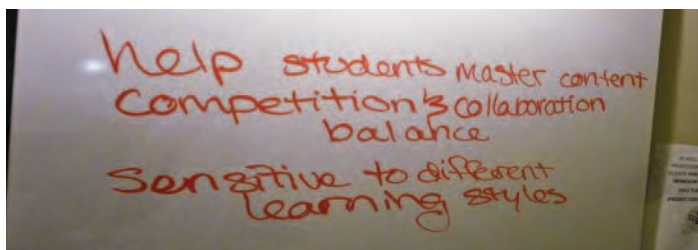 help students Master content
Competition & collaboration
balance
Sensitive to different
learning styles